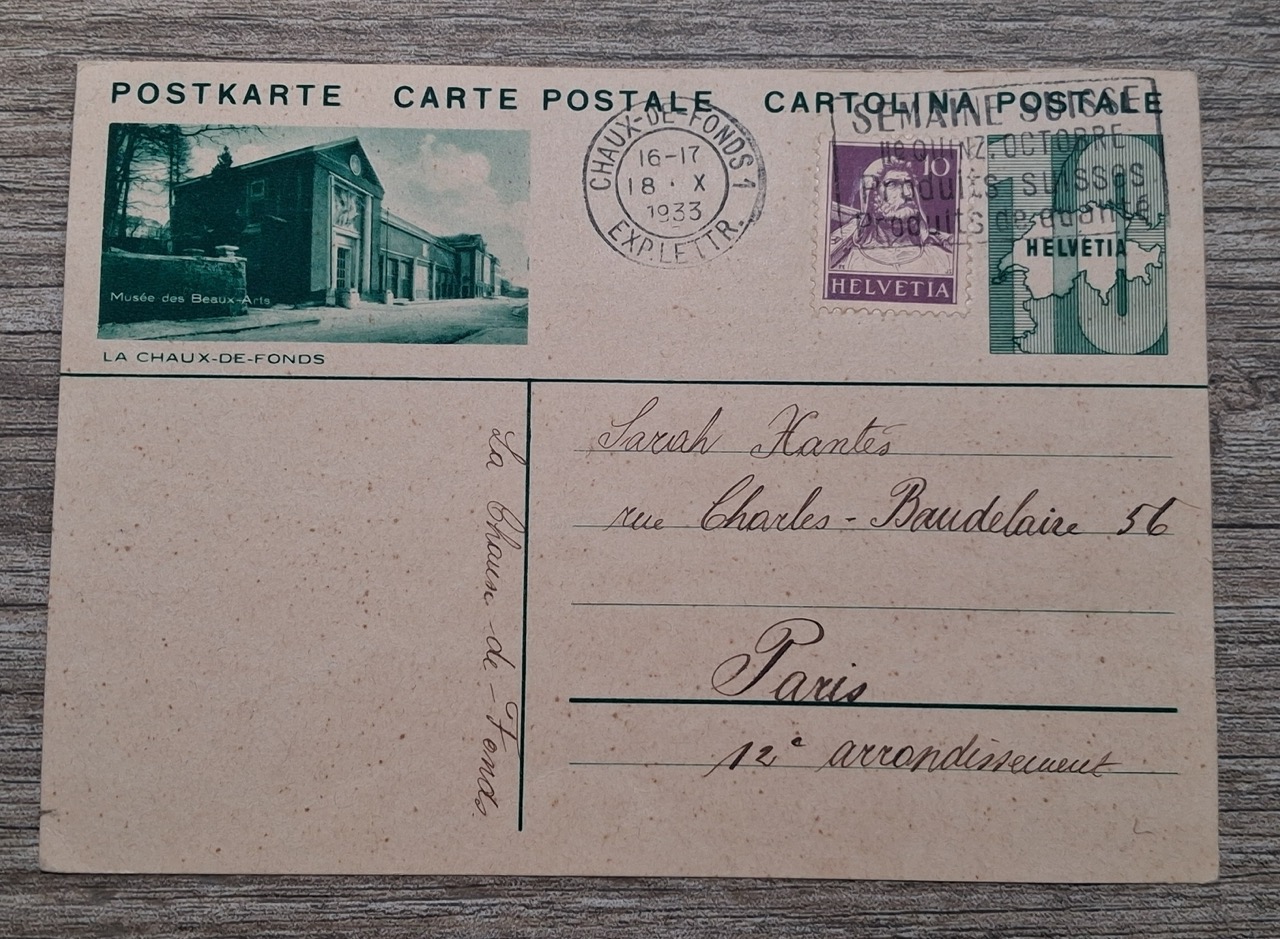 POSTKARTE CARTE POSTALE CARTOLINA POSTALE
Musée des Beaux-Arts
LA CHAUX-DE-FONDS
CHAUX-DE-FONDS 1
16-17
18 · X
1933
EXP. LETTR.
SEMAINE SUISSE
IIe QUINZ. OCTOBRE
Produits suisses
Produits de qualité
10
HELVETIA
10
HELVETIA
La Chaux-de-Fonds.
Sarah Xantès
rue Charles-Baudelaire 56
Paris
12e arrondissement